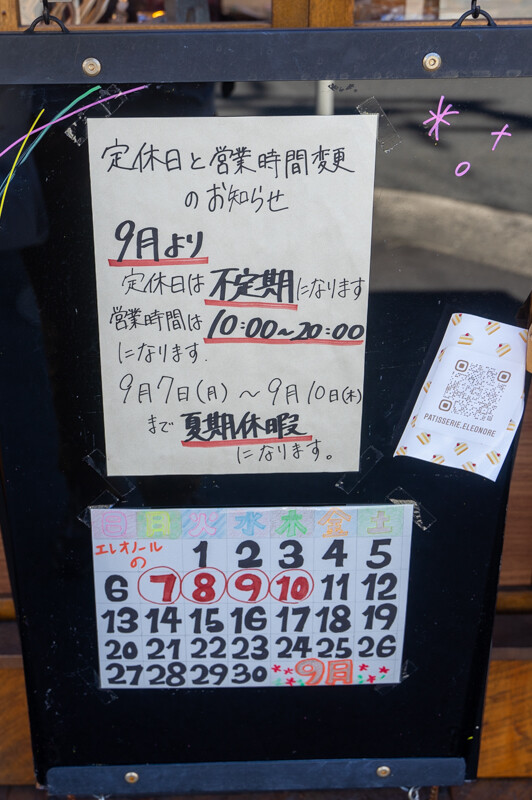 定休日と営業時間変更
のお知らせ
9月より
定休日は不定期になります
営業時間は10:00~20:00
になります.
9月7日(月)~9月10日(木)
まで夏期休暇
になります。
PATISSERIE.ELEONORE
日 日 火 水 木 金 土
エレオノール
の
1 2 3 4 5
6 7 8 9 10 11 12
13 14 15 16 17 18 19
20 21 22 23 24 25 26
27 28 29 30 9月